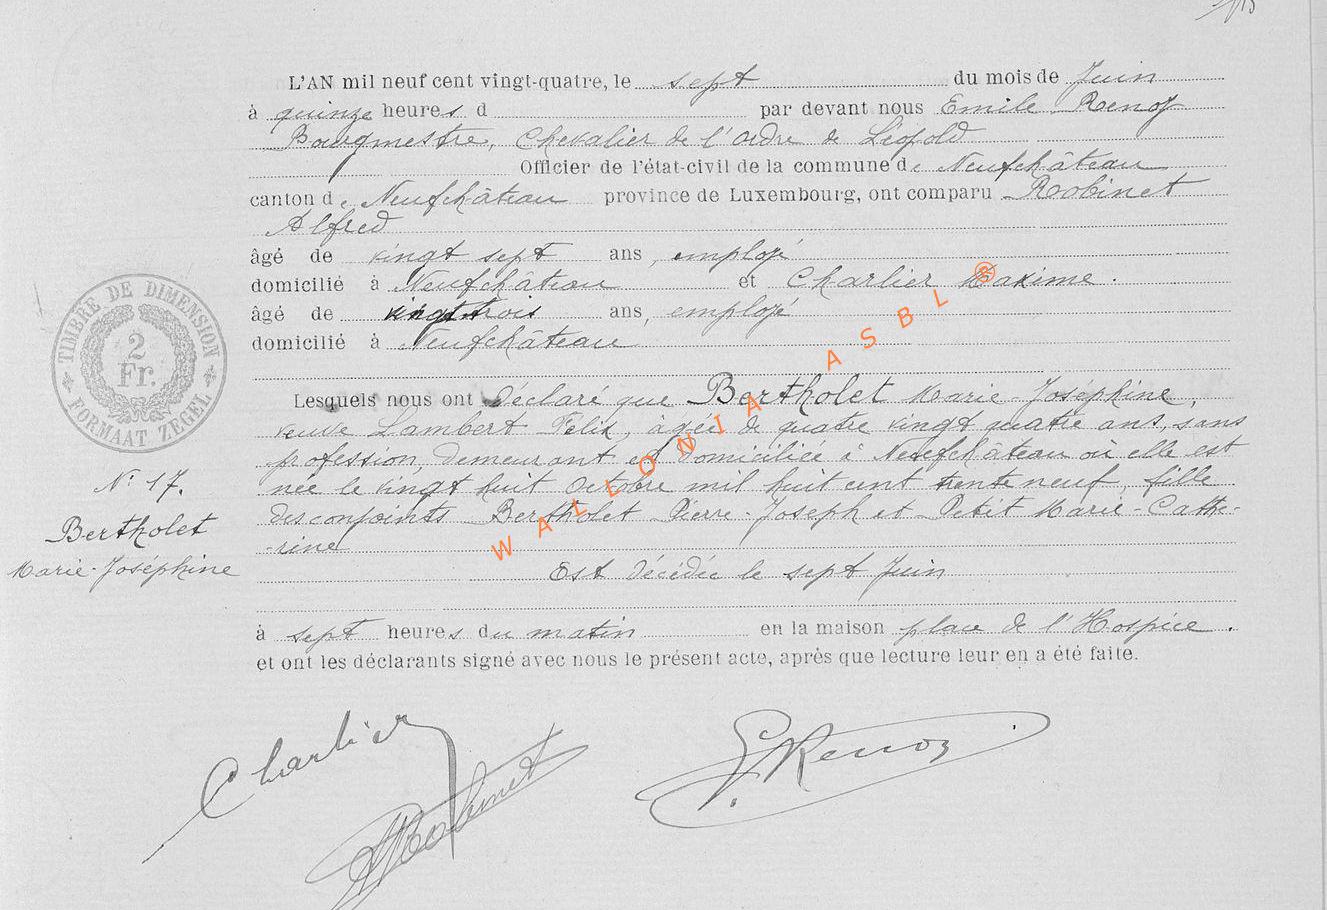 L'AN mil neuf cent vingt-quatre, le sept du mois de Juin
à quinze heures d par devant nous Emile Renoz
Bourgmestre, Chevalier de l'Ordre de Léopold
Officier de l'état-civil de la commune de Neufchâteau
canton de Neufchâteau province de Luxembourg, ont comparu Robinet
Alfred
âgé de vingt sept ans, employé
domicilié à Neufchâteau et Charlier Maxime.
âgé de vingt trois ans, employé
domicilié à Neufchâteau
Lesquels nous ont déclaré que Bertholet Marie-Joséphine,
veuve Lambert Felix, âgée de quatre vingt quatre ans, sans
profession, demeurant et domiciliée à Neufchâteau où elle est
née le vingt huit Octobre mil huit cent trente neuf, fille
des conjoints Bertholet Pierre-Joseph et Petit Marie-Cathe-
-rine
Est décédée le sept Juin
à sept heures du matin en la maison place de l'Hospice.
et ont les déclarants signé avec nous le présent acte, après que lecture leur en a été faite.
TIMBRE DE DIMENSION
2
Fr.
FORMAAT ZEGEL
N° 17.
Bertholet
Marie-Joséphine
WALLONIA ASBL ®
Charlier
Robinet
E. Renoz